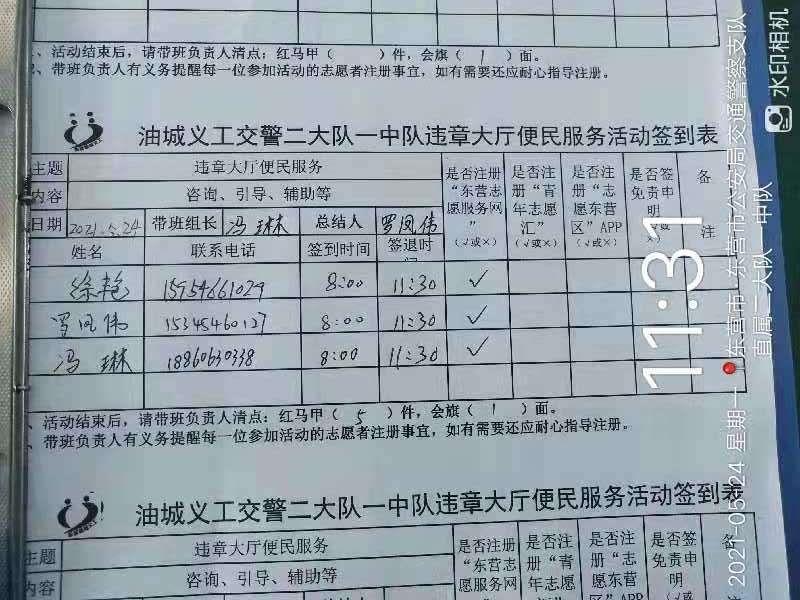 、活动结束后，请带班负责人清点：红马甲（ ）件，会旗（ 1 ）面。
、带班负责人有义务提醒每一位参加活动的志愿者注册事宜，如有需要还应耐心指导注册。
油城义工交警二大队一中队违章大厅便民服务活动签到表
主题 违章大厅便民服务 是否注册“东营志愿服务网”（√或×） 是否注册“青年志愿汇”（√或×） 是否注册“志愿东营区”APP（√或×） 是否签免责申明（√或×） 备注
内容 咨询、引导、辅助等
日期 2021.5.24 带班组长 冯琳 总结人 罗凤伟
姓名 联系电话 签到时间 签退时间
徐艳 15954661029 8:00 11:30 √
罗凤伟 15345460127 8:00 11:30 √
冯琳 18860630338 8:00 11:30 √
、活动结束后，请带班负责人清点：红马甲（ 5 ）件，会旗（ 1 ）面。
、带班负责人有义务提醒每一位参加活动的志愿者注册事宜，如有需要还应耐心指导注册。
油城义工交警二大队一中队违章大厅便民服务活动签到表
主题 违章大厅便民服务 是否注册“东营志愿服务网 是否注册“青年志愿 是否注册“志愿东营区”APP 是否签免责申明 备注
内容 咨询、引导、辅助等
11:31
2021-05-24 星期一 东营市·东营市公安局交通警察支队
直属二大队一中队
水印相机